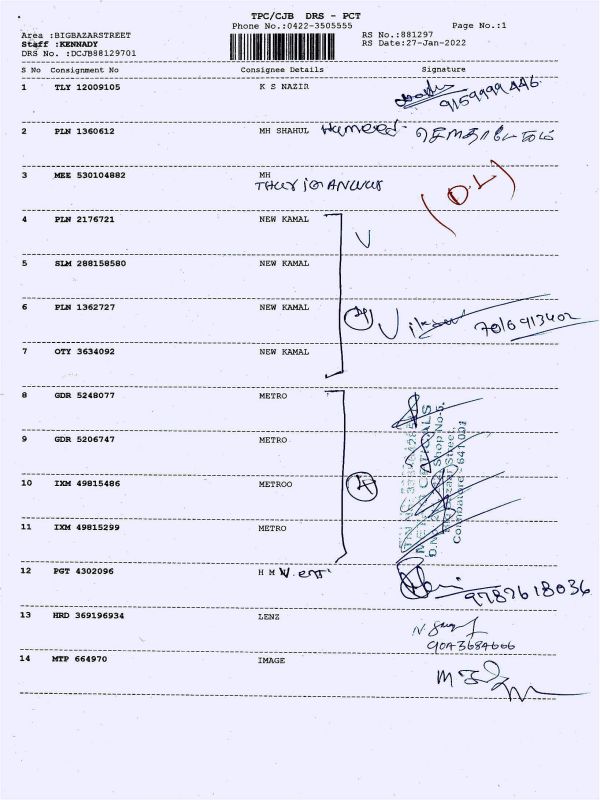 TPC/CJB DRS - PCT
Phone No.:0422-3505555 Page No.:1
Area :BIGBAZARSTREET RS No.:881297
Staff :KENNADY RS Date:27-Jan-2022
DRS No. :DCJB88129701
S No Consignment No Consignee Details Signature
1 TLY 12009105 K S NAZIR
9159999446
2 PLN 1360612 MH SHAHUL Hameed
3 MEE 530104882 MH
(D.L)
4 PLN 2176721 NEW KAMAL
5 SLM 288158580 NEW KAMAL
6 PLN 1362727 NEW KAMAL 4
7 OTY 3634092 NEW KAMAL
8 GDR 5248077 METRO
9 GDR 5206747 METRO
10 IXM 49815486 METROO 4
11 IXM 49815299 METRO
Shop No-5,
Coimbatore 641 001
12 PGT 4302096 H M
9787618036
13 HRD 369196934 LENZ
14 MTP 664970 IMAGE